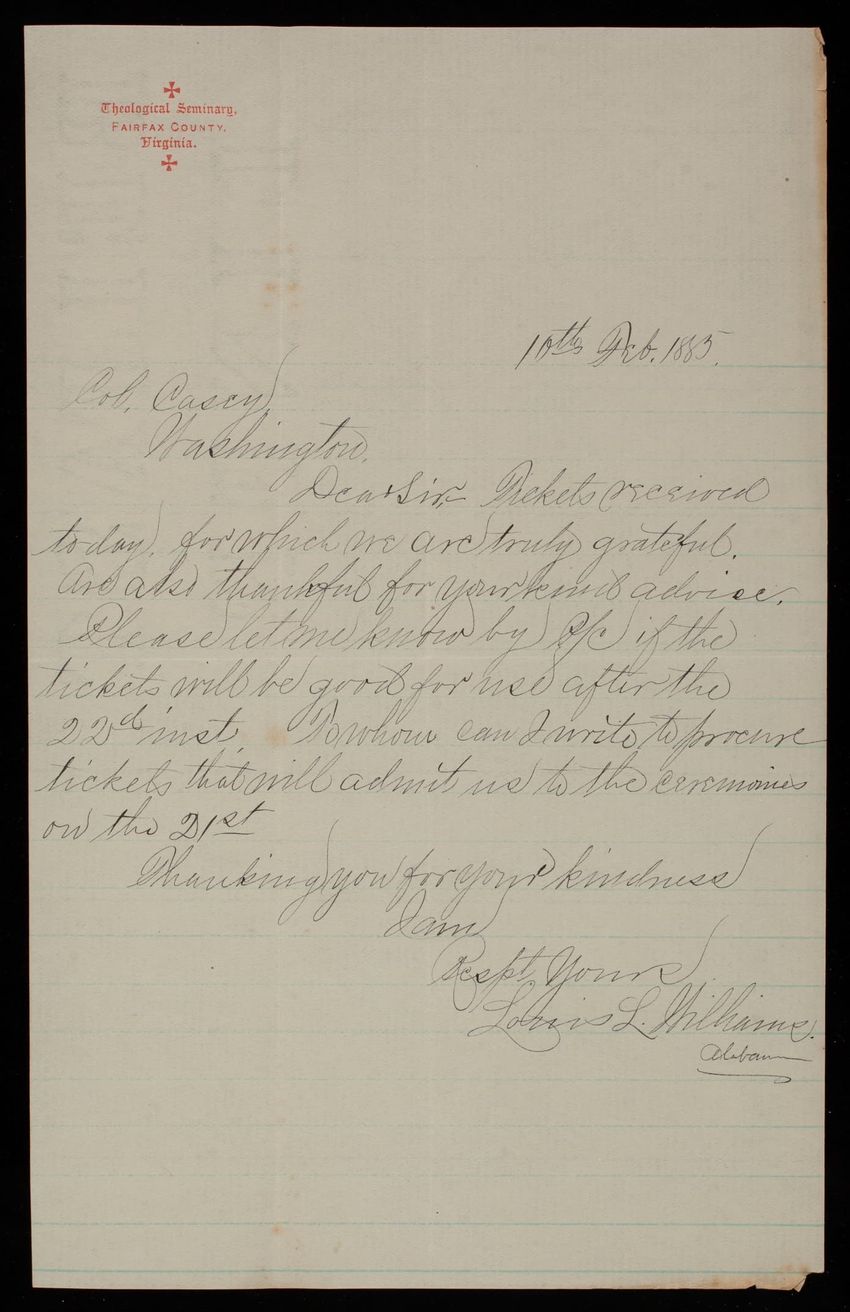 Theological Seminary,
FAIRFAX COUNTY,
Virginia.
10th Feb. 1885.
Col. Casey,
Washington.
Dear Sir,- Tickets received
today, for which we are truly grateful.
Are also thankful for your kind advise.
Please let me know by P/c if the
tickets will be good for use after the
22d inst. To whom can I write to procure
tickets that will admit us to the ceremonies
on the 21st
Thanking you for your kindness
I am
Respt. Yours
Louis L. Williams.
Alabama